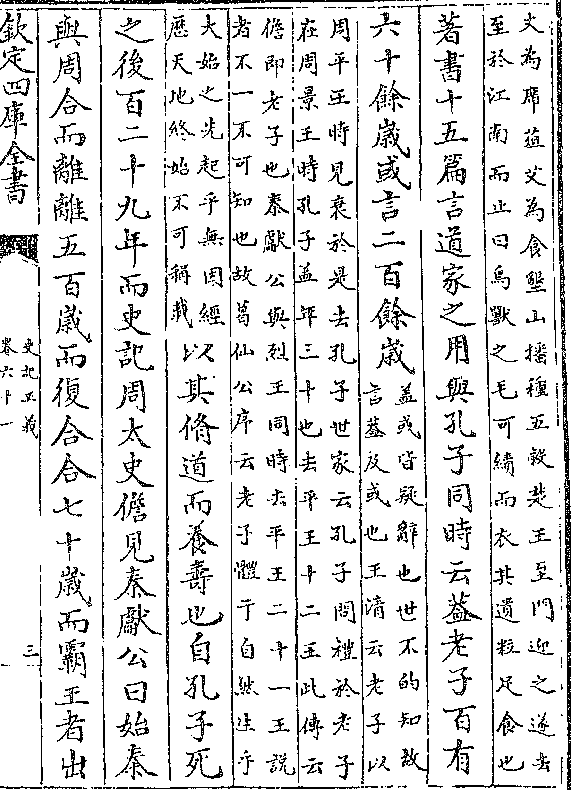 文為席菹艾為食墾山播種五穀楚王至門迎之遂去
至於江南而止曰鳥獸之毛可績而衣其遺粒足食也
著書十五篇言道家之用與孔子同時云蓋老子百有
六十餘歲或言二百餘歲
蓋或皆疑辭也世不的知故
言蓋及或也玉清云老子以
周平王時見衰於是去孔子世家云孔子問禮於老子
在周景王時孔子蓋年三十也去平王十二王此傳云
儋即老子也秦獻公與烈王同時去平王二十一王說
者不一不可知也故葛仙公序云老子體于自然生乎
大始之先起乎無因經
歷天地終始不可稱載
以其脩道而養壽也自孔子死
之後百二十九年而史記周太史儋見秦獻公曰始秦
與周合而離離五百歲而復合合七十歲而霸王者出
欽定四庫全書
史記正義
卷六十一
三